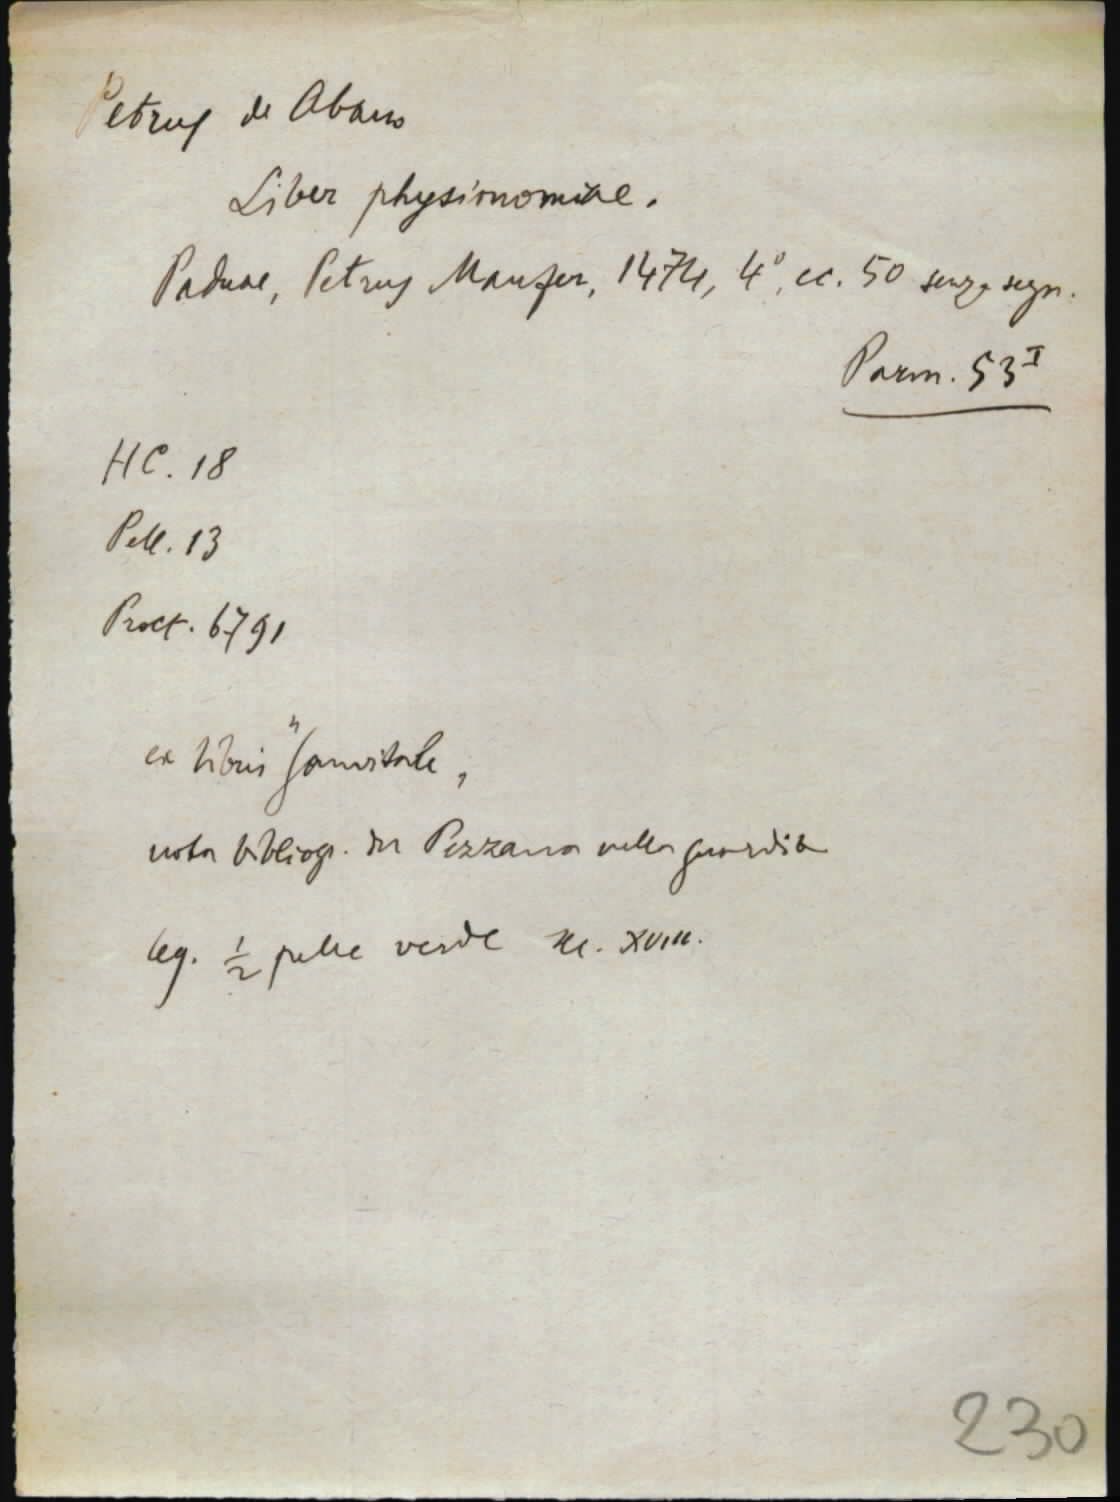 Petrus de Abano
Liber physionomiae.
Paduae, Petrus Maufer, 1474, 4°, cc. 50 senza segn.
Parm. 53 I
HC. 18
Pell. 13
Proct. 6791
ex libris "Sanvitale,
nota bibliogr. del Pezzana nella guardia
leg. 1/2 pelle verde sec. XVIII.
230